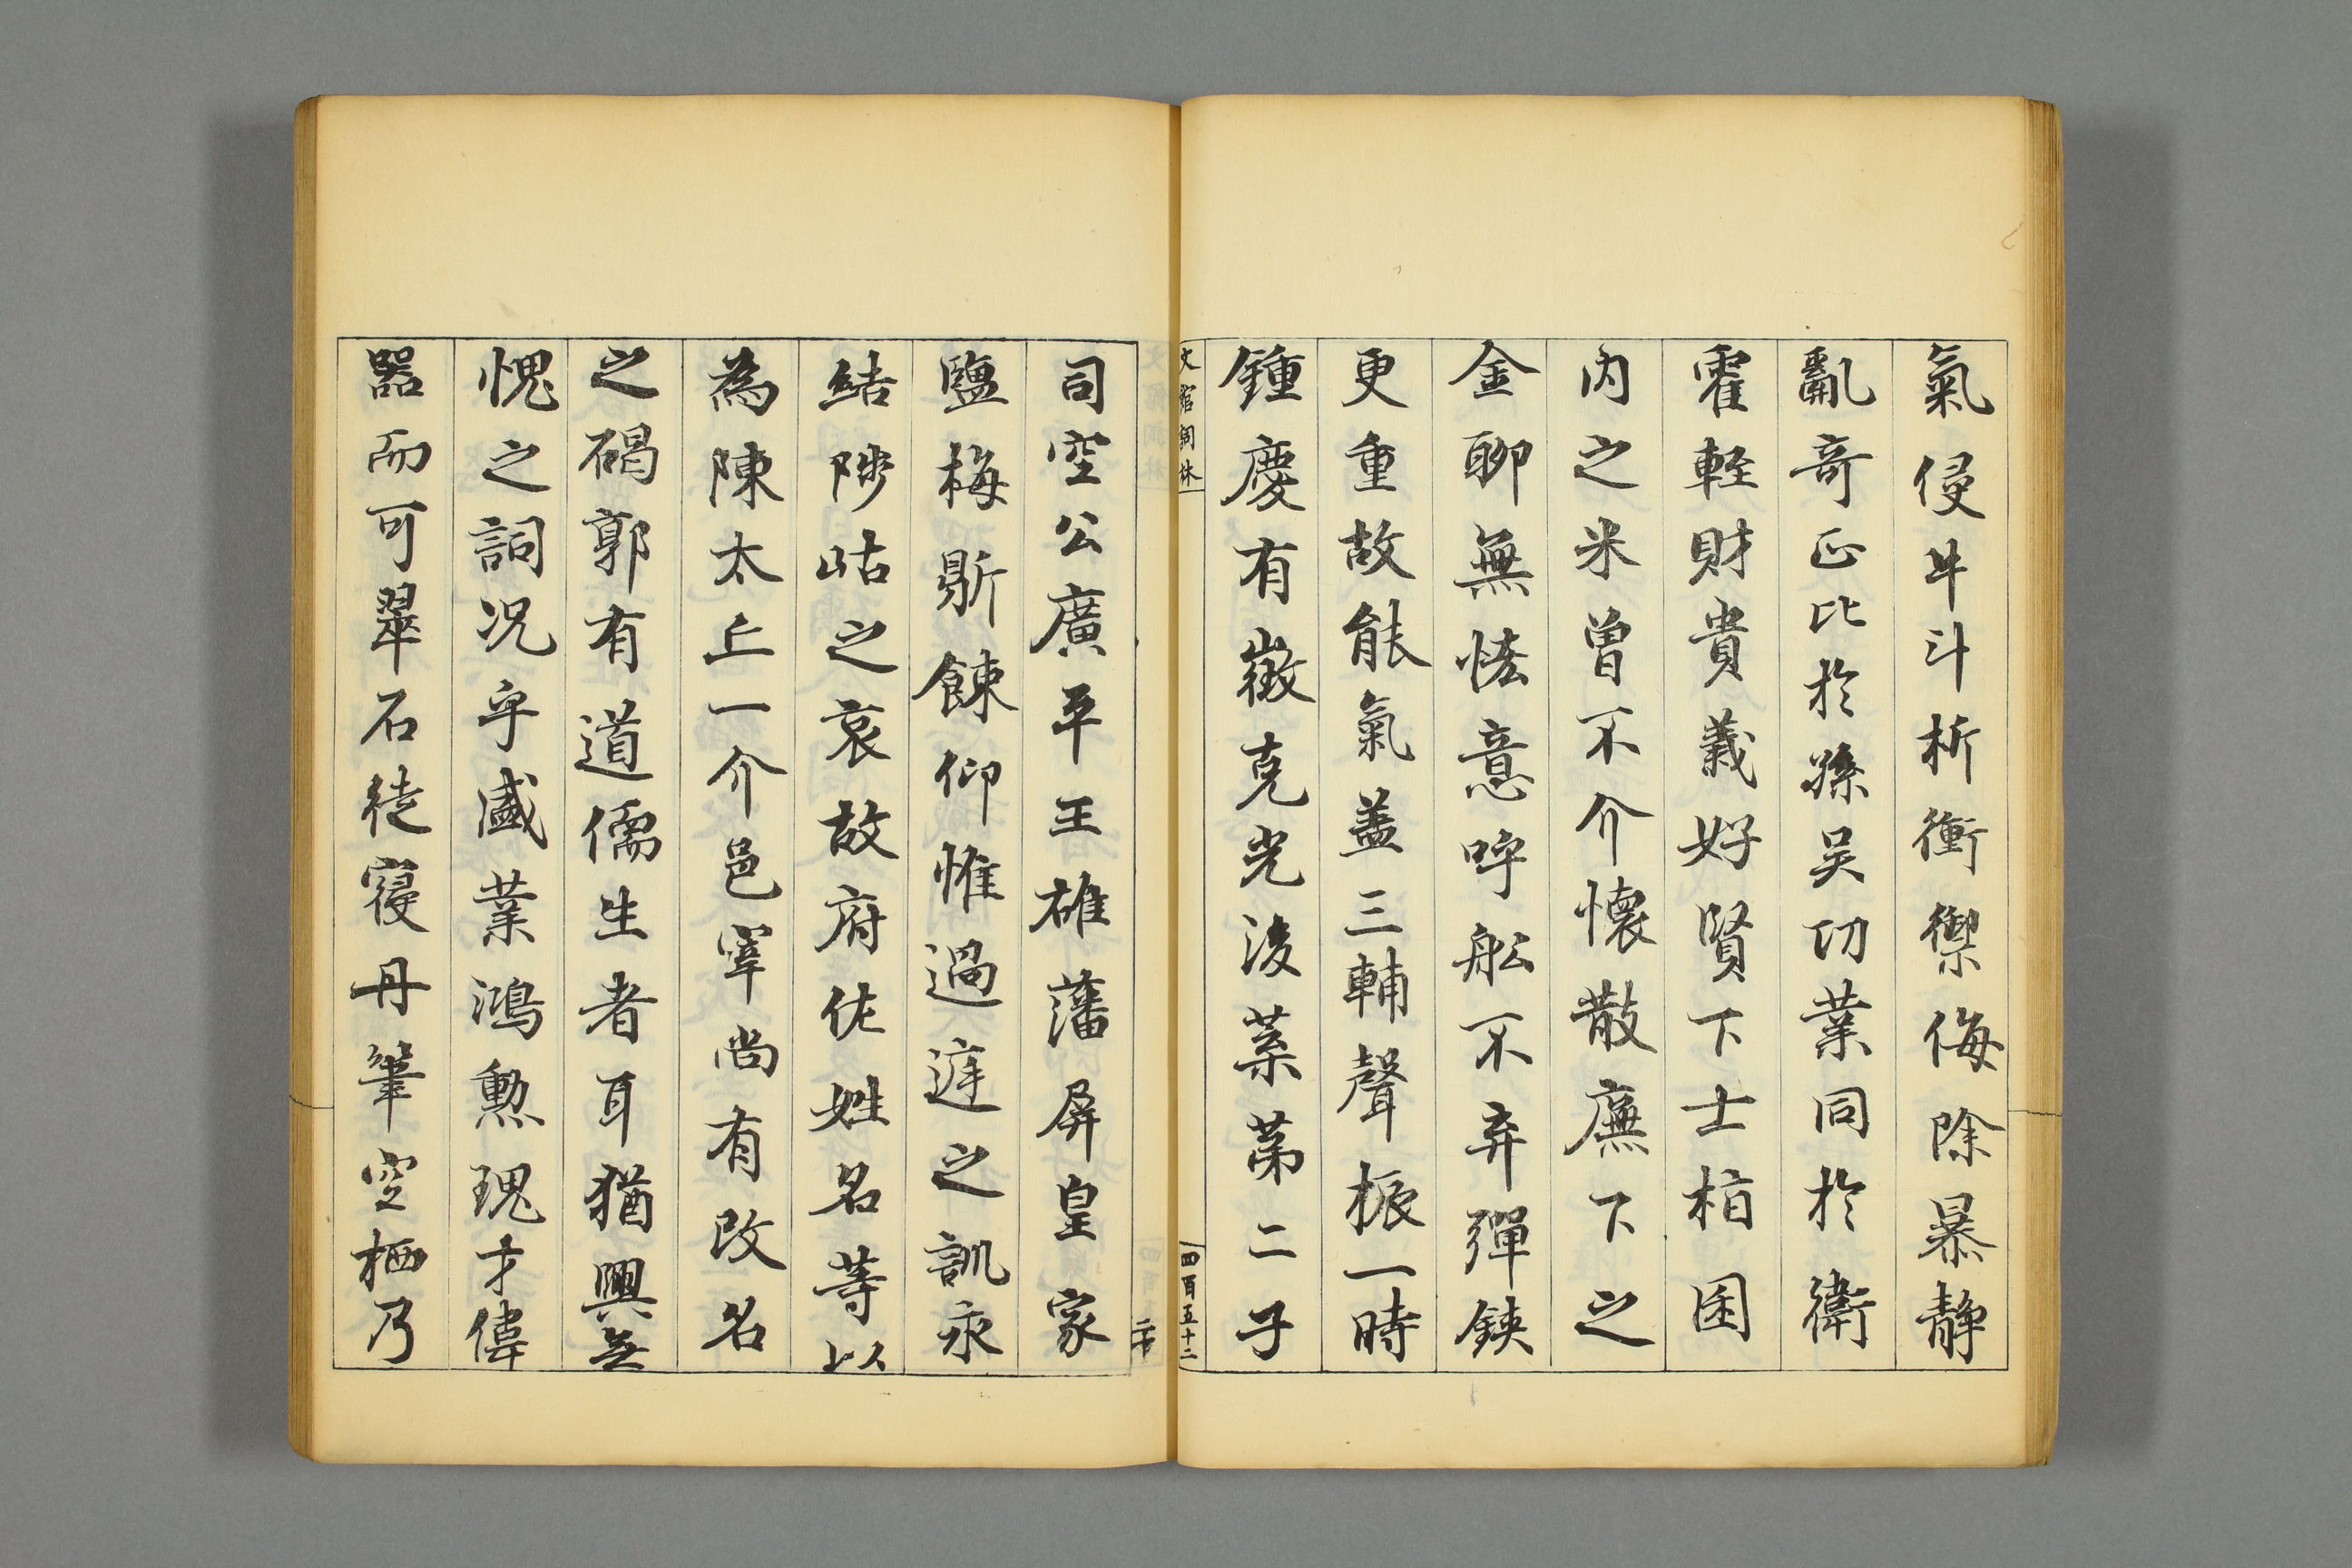 氣侵牛斗折衝禦侮除暴靜
亂奇正比於孫吴功業同於衛
霍輕財貴義好賢下士柏囷
內之米曾不介懷散廡下之
金聊無恡意呼舩不弃彈鋏
更重故能氣蓋三輔聲振一時
鍾慶有徵克光浚葉第二子
文館詞林
四百五十二
司空公廣平王雄藩屏皇家
鹽梅鼎餗仰惟過庭之訓永
結陟岵之哀故府佐姓名等以
為陳太丘一介邑宰尚有改名
之碣郭有道儒生者耳猶興無
愧之詞况乎盛業鴻勲瑰才偉
器而可翠石徒寢丹筆空栖乃